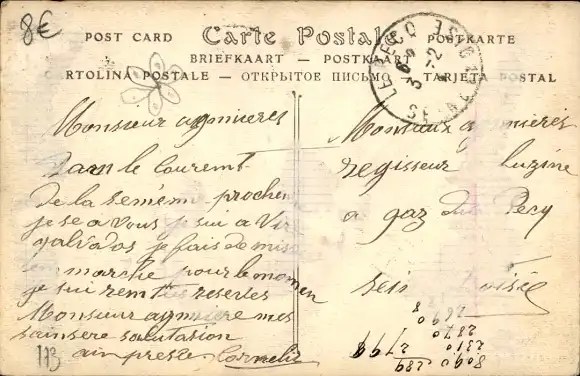 8€
POST CARD Carte Postale POSTKARTE
BRIEFKAART — POSTKAART
RTOLINA POSTALE — ОТКРЫТОЕ ПИСЬМО — TARJETA POSTAL
LE PECQ
Monsieur agnieres
Dan le courent
de la semiem prochen
je se a Vous je sui a Vir
galvados je fais de mise
en marche pour le momen
je sui remtus reserves
Monsieur agniere mes
sainsere salutasion
ain presse Cornelis
113
Monsieur agnieres
regisseur Luzine
a gaz du Pecq
sein Loisée
8
90
2870
2310
8090
289